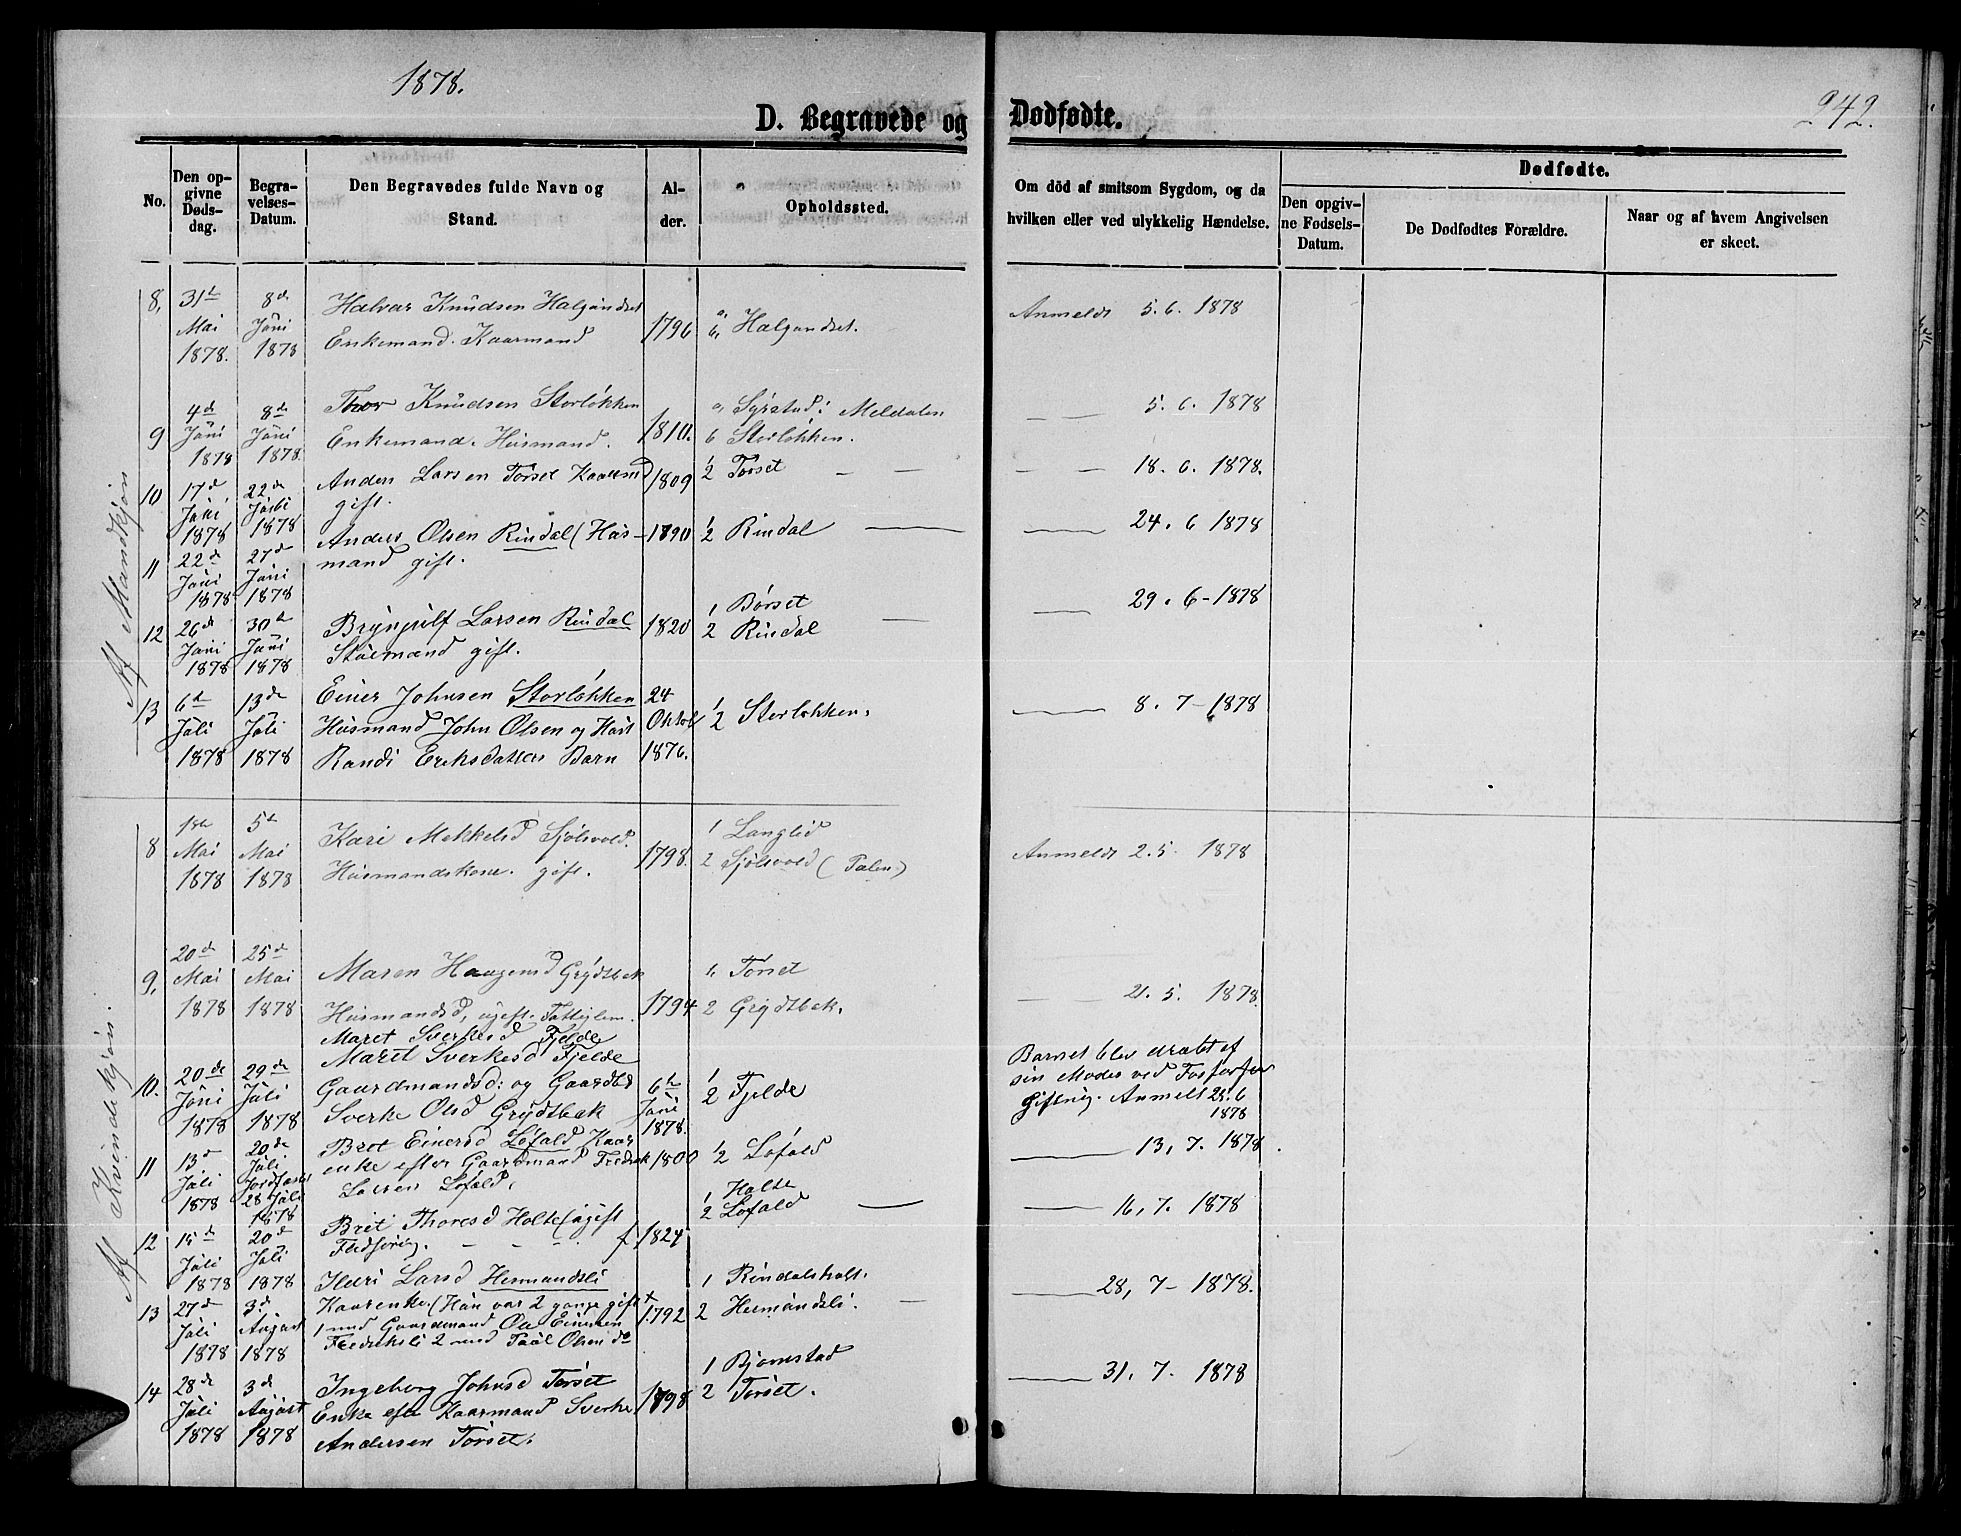 1878.
242.
D. Begravede og Dødfødte.
No.
Den opgivne Dødsdag.
Begravelses-Datum.
Den Begravedes fulde Navn og Stand.
Alder.
Opholdssted.
Om död af smitsom Sygdom, og da hvilken eller ved ulykkelig Hændelse.
Dødfødte.
Den opgivne Fødsels-Datum.
De Dødfødtes Forældre.
Naar og af hvem Angivelsen er skeet.
Af Mandkjøn
8, 31te Mai 1878. 8de Júni 1878
Halvar Knúdsen Halgúndset
Enkemand. Kaarmand
1796
a, b, Halgundset.
Anmeldt 5. 6. 1878
9 4de Júni 1878 8de Júni 1878
Thor Knúdsen Storløkken
Enkemand. Húsmand.
1810.
a, Syrstad i Meldalen
b Storløkken.
5. 6. 1878
10 17de Júni 1878 22de 1878
Anders Larsen Torset Kaarm
gift.
1809
1/2 Torset
18. 6. 1878.
11 22de Júni 1878 27de Júni 1878
Anders Olsen Rindal (Hús-
mand gift.
1790
1/2 Rindal
24. 6 1878
12 26de Júni 1878 30te Júni 1878
Brynjúlf Larsen Rindal
gift.
1820
1 Børset
2 Rindal
29. 6 - 1878
13 6te Júli 1878 13de Júli 1878
Einer Johnsen Storløkken
Húsmand John Olsen og Húst
Randi Eriksdatters Barn
24 Oktob 1876.
1/2 Storløkken.
8. 7 - 1878
Af Kvindekjøn.
8 1ste Mai 1878 5te Mai 1878
Kari Mekkelsd Sjølsvold.
Húsmandskone. gift.
1798.
1 Langlid
2 Sjølsvold
Anmeldt 2. 5. 1878
9, 20de Mai 1878 25de Mai 1878
Maren Haagensd Grýdtbak
Húsmandsd, ugift. Fattiglem.
1794
1, Torset
2 Grýdtbak.
21. 5. 1878.
10. 20de Júni 1878 29de Júli 1878
Maret Sverkesd Fjelde
Maret Sverkesd Fjelde
Gaardmandsd: og
Sverke Olsd Grýdtbak
6te Júni 1878.
1/2 Fjelde
Barnet blev dræbt af
sin Moder ved Fosfor
Giftnig. Anmeldt 28. 6
1878
11 13de Júli 1878 20de Júli Jordfæstet 28 Júli 1878
Brot Einersd Løfald Kaar
enke efter Gaardmand Fredrik
Larsen Løfald.
1800
1/2 Løfald
13, 7. 1878.
12 15de Júli 1878 20de Júli 1878
Brit Thoresd Holte (úgift
1824
1 Holte
2 Løfald
16, 7. 1878
13 27de Júli 1878 3de Aúgúst 1878
Ildri Larsd Hermandsli
Kaarenke. (Hún var 2 gange gift
1 med Gaardmand Ole Einersen
Fredriksli 2 med Paúl Olsen do
1792
1 Rindalsholt.
2 Hermandsli.
28, 7 - 1878.
14 28de Júli 1878 3de Aúgúst 1878
Ingeborg Johnsd Torset
Enke eft Kaarmand Sverke
Andersen Torset.
1798
1 Bjornstad
2 Torset.
31. 7. 1878